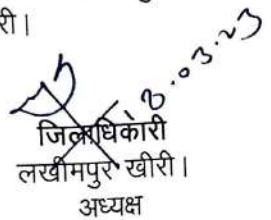 री।
8.03.23
जिलाधिकारी
लखीमपुर खीरी।
अध्यक्ष